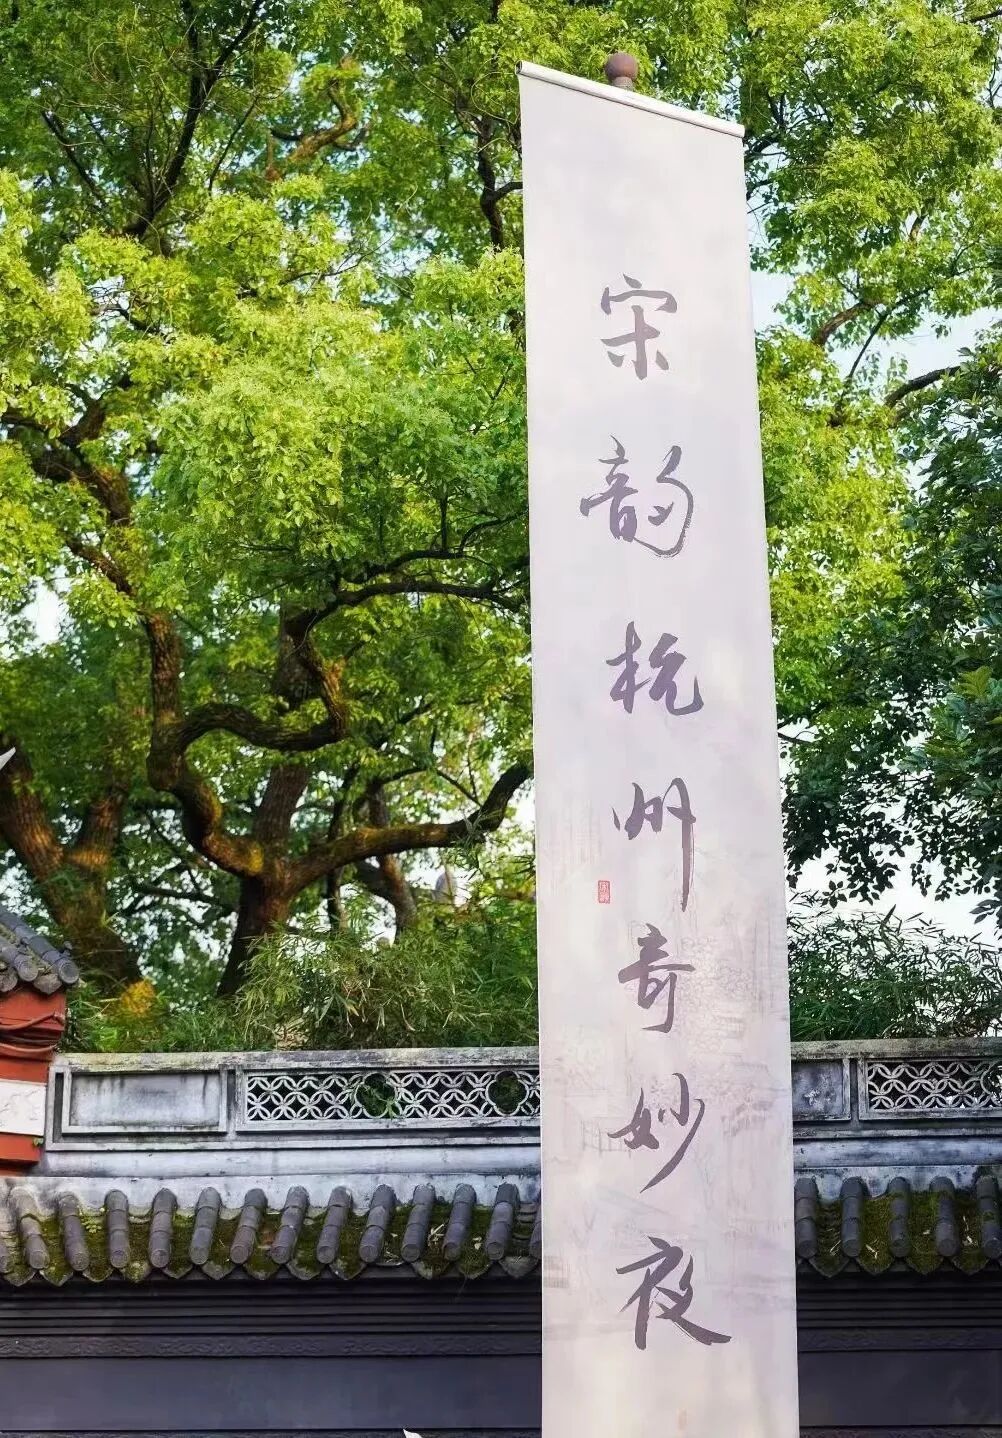 宋韵杭州奇妙夜